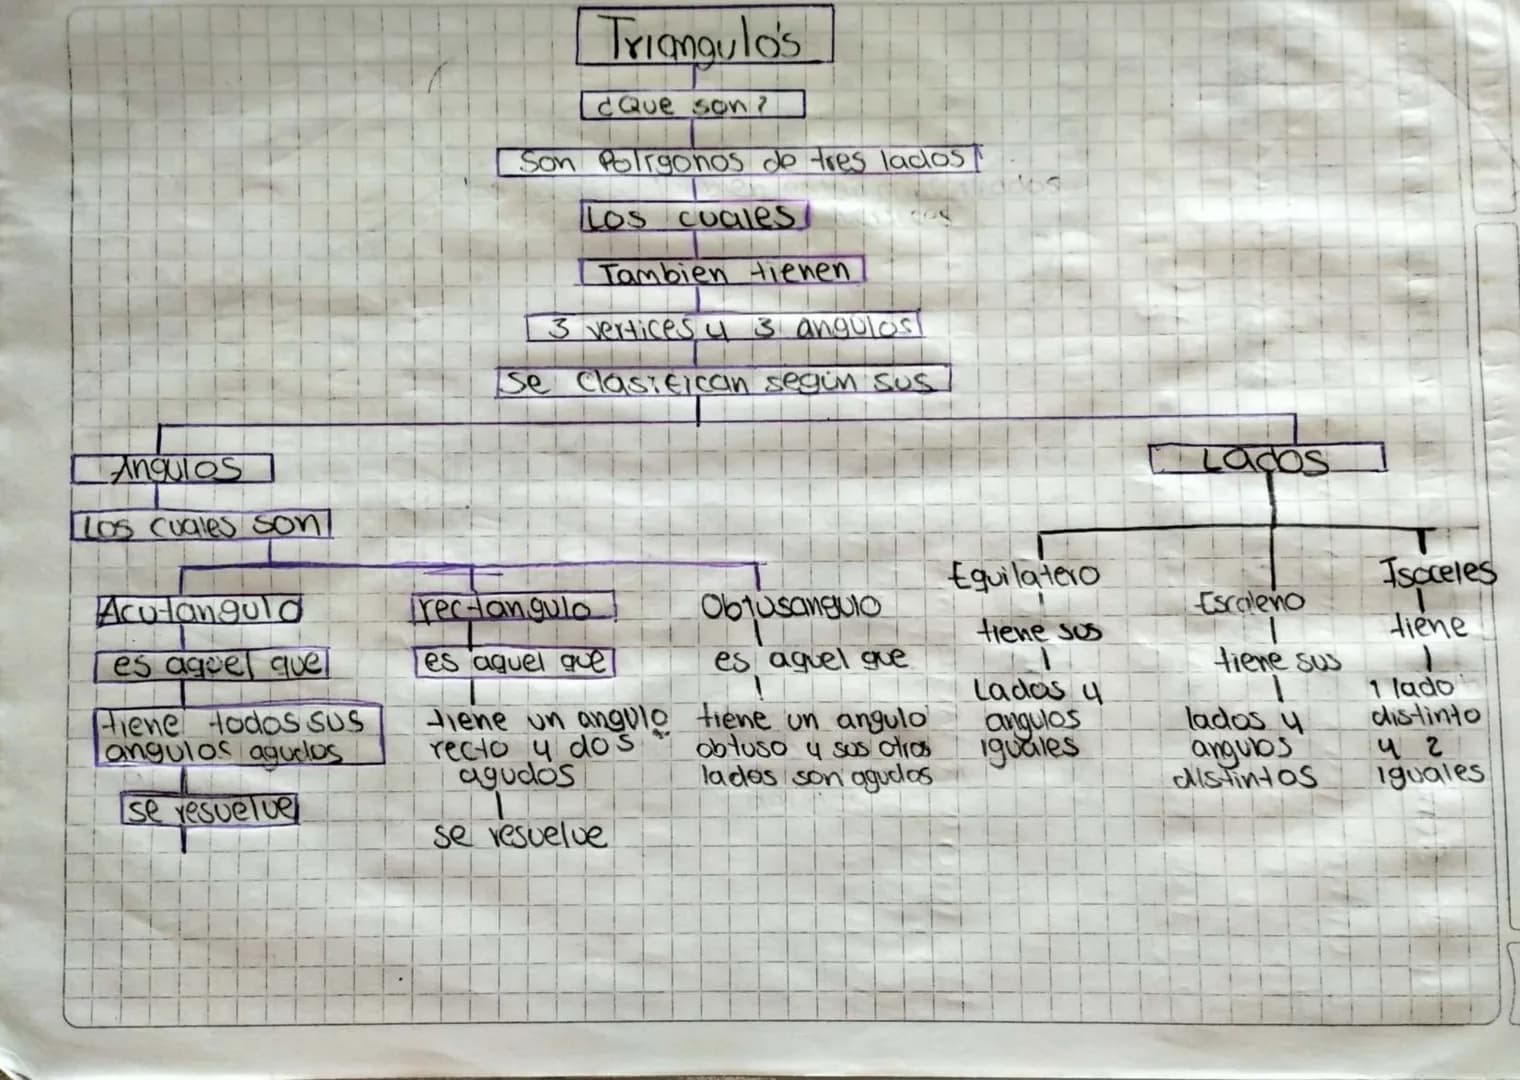 Triangulo's
¿Que son?
Son Polígonos de tres lados
Los cuales
Tambien tienen
3 vertices y 3 angulos
Se Clasifican según sus
Angulos
Lados
Los cuales son
Acutangulo
es aquel que
tiene todos sus
angulos agudos
se resuelve
rectangulo
es aquel que
tiene un angulo
recto y dos
agudos
se resuelve
Obtusangulo
es aquel que
tiene un angulo
obtuso y sus otros
lados son agudos
Equilatero
tiene sus
Lados y
angulos
iguales
Escaleno
tiene sus
lados y
angulos
distintos
Isoceles
tiene
1 lado
distinto
y 2
iguales